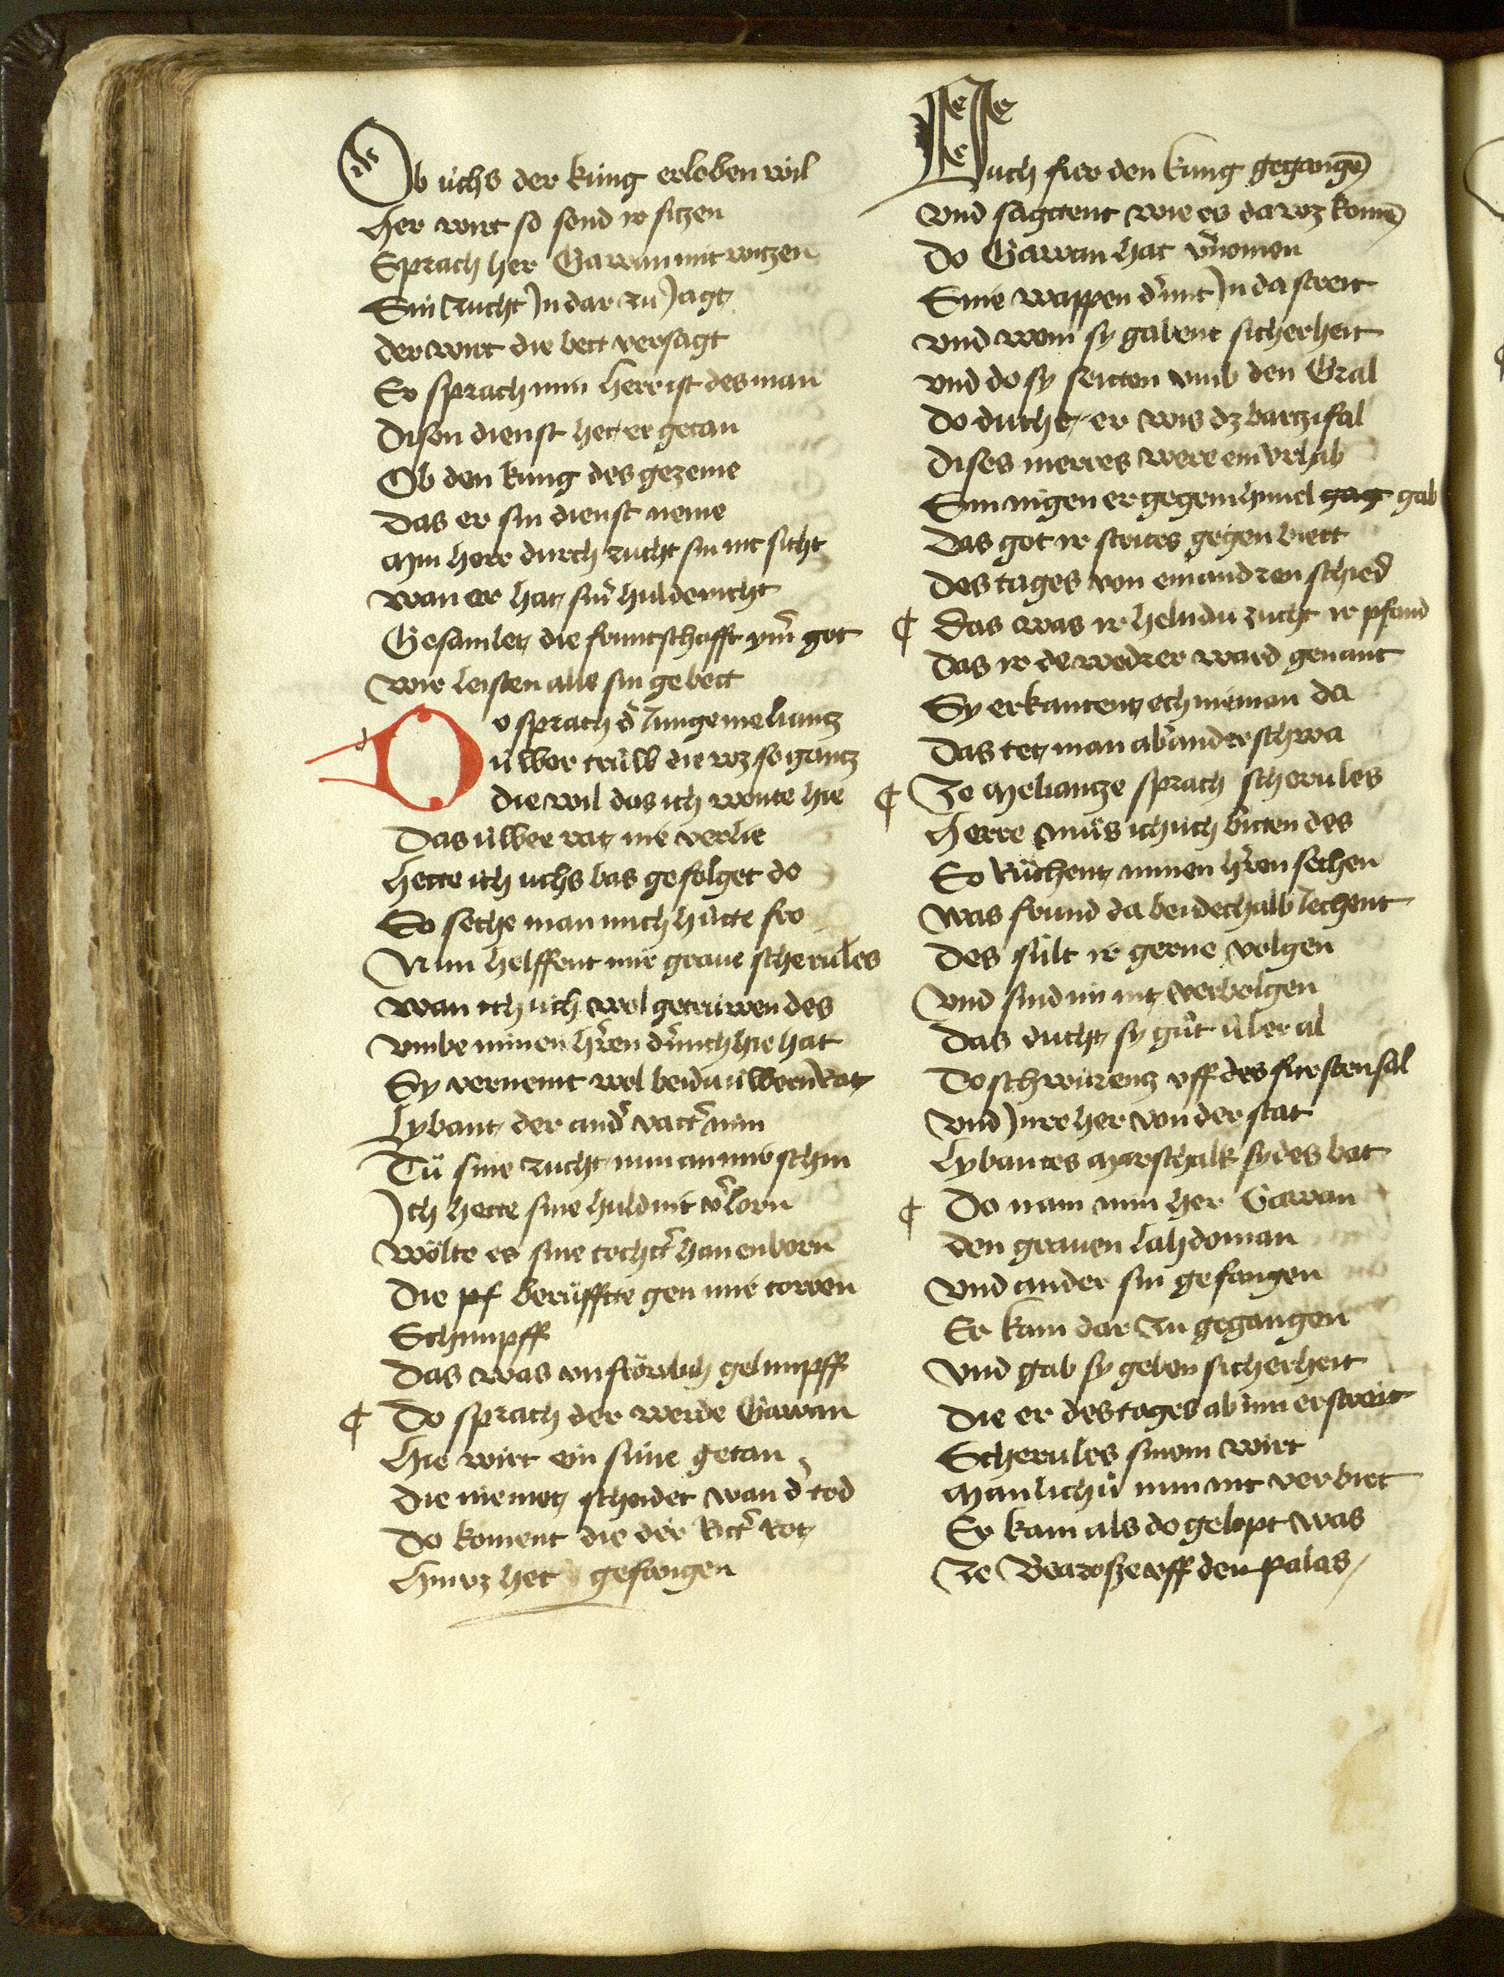 Ob úchs der kúng erloben wil
Her wirt so sond ir sitzen
Sprach her Gawan mit witzen
Sin zucht Jn dar zú Jagt
der wirt die bett versagt
Er sprach min herr ist des man
Disen dienst het er getan
Ob den kúng des gezeme
Das er sin dienst neme
Min herr durch zucht sin nit sicht
wan er hat sinr huld nicht
Gesamlet die fruntschafft ym̄ got
wir leisten alle sin gebott
Do sprach d̓ Junge melianz
úwer trúw die wz so gantz
die wil das ich wonte hie
Das úwer rat mie verlie
Hette ich uchs bas gefolget do
So seche man mich hútte fro
Nun helffent mir grave scherules
wan ich úch wol getrúwen des
vmbe minen h̓ren d̓ mich hie hat
Sy vernemt wol beidu úwern Rat
Lybaut der and̓ vatt̓ min
Tú sine zucht nun an mir schin
Ich hette sine huld nit v̓lorn
wölte es sine tocht̓ han enborn
Die pf berúffte gen mir torren
Schimpff
Das was unfröwlich gelimpff
¶ Do sprach der werde Gawan
Hie wirt ein súne getan
die niemot scheidet wan d̓ tod
Do koment die der Ritt̓ Rot
Hin vz het gefangen
Vch fúr den kúng gegangē
Vnd sagttent wie es da wz komē
Do Gawan hat v̓nomen
Sine wappen d̓ mit Jn da streit
vnd wem sy gabent sicherheit
vnd do sy seitten vmb den Gral
Do duchte er wis dz bartzifal
Dises merres were ein vrhab
Sin nigen er gegem himel gag gab
Das got ir strites gegen biett
Des tages von einandren schied
¶ Das was ir helndu zucht ir pfand
Das ir dewedrer ward genant
Sy erkantent och niemen da
Das tet man ab̓ anderschwa
¶ Ze Meliantze sprach scherules
Herre Můs ich úch bitten des
So Růchent minen h̓ren sechen
was frúnd da beidechalb Jechent
Des súlt ir gerne volgen
Vnd sind im nit verbolgen
Das ducht sy gůt úber al
Do schwúrentz uff des fursten sal
Vnd Jnre her von der stat
Lybautes Marschalk sy des bat
¶ Do nam min her Gawan
den graven lahdoman
Vnd ander sin gefangen
Er kam dar zu gegangen
Vnd gab sy geben sicherheit
Die er des tages ab im erstreit
Scherules sinem wirt
Manlich̓ nun nit verbirt
Er kam als do gelopt was
Ze Bearosze vff den palas